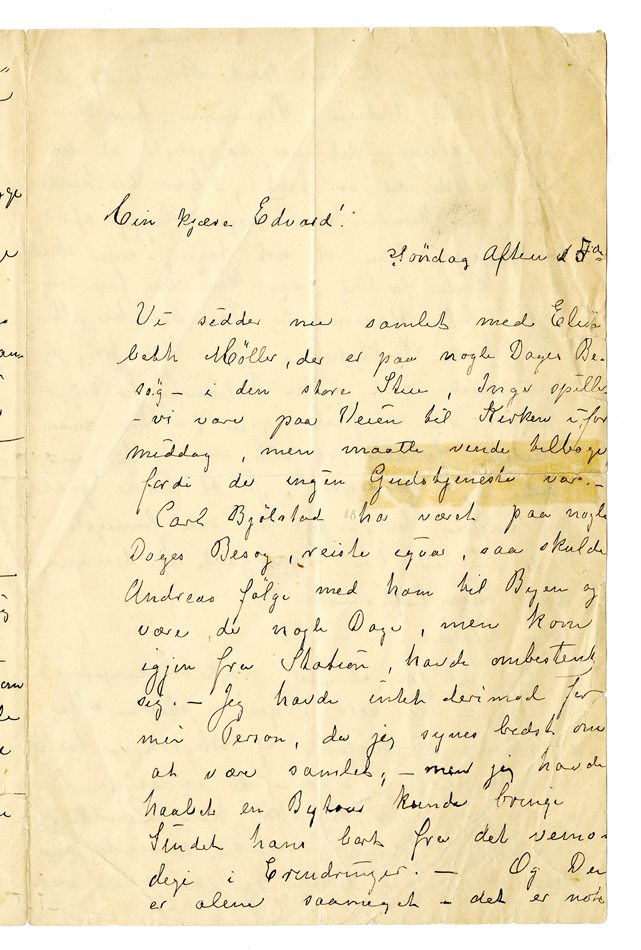 Min kjære Edvard!
Söndag Aften d 5te
Vi sidder nu samlet med Elisa
beth Møller, der er paa nogle Dages Be-
søg – i den store Stue, Inger spiller
– vi vare paa Veien til Kirken i for
middag, men maatte vende tilbage
fordi de ingen Gudstjeneste var. –
Carl Bjölstad har været paa nogle
Dages Besøg, reiste igaar, saa skulde
Andreas følge med ham til Byen og
være de nogle Dage, men kom
igjen fra Station, havde ombestemt
sig. – Jeg havde intet derimod for
min Person, da jeg synes bedst om
at være samlet, – men jeg havde
haabet en Bytour kunde bringe
Sindet hans bort fra det vemo-
dige i Erindringer. – Og Du
er alene saameget – det er